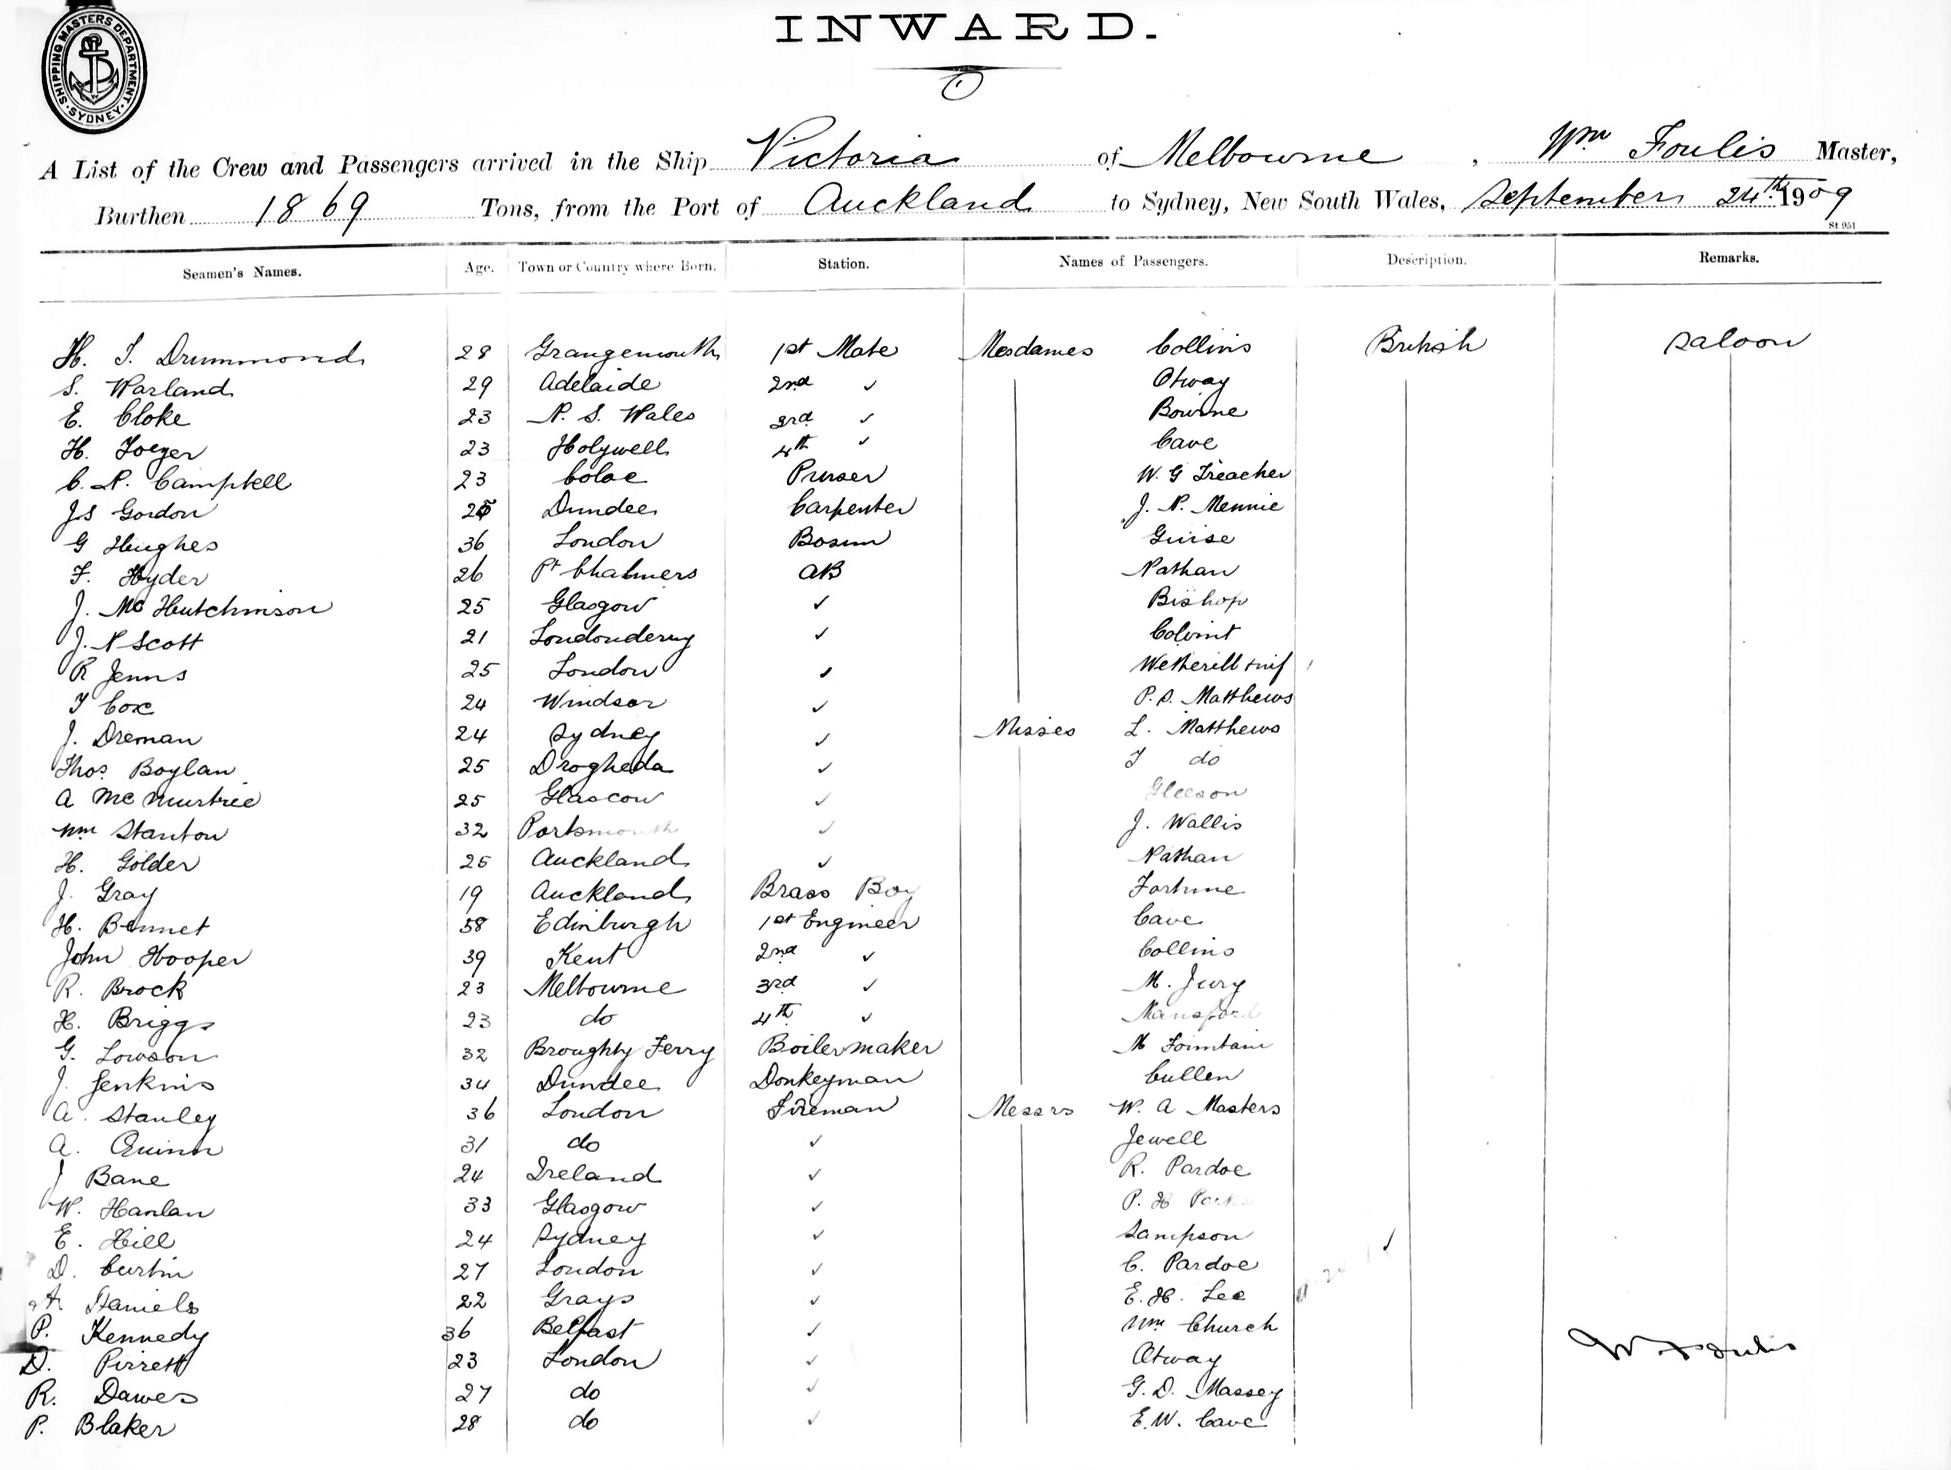 INWARD.
SHIPPING MASTERS DEPARTMENT. SYDNEY.
A List of the Crew and Passengers arrived in the Ship Victoria of Melbourne, Wm Foulis Master,
Burthen 1869 Tons, from the Port of Auckland to Sydney, New South Wales, September 24th 1909
St 951
Seamen's Names. Age. Town or Country where Born. Station. Names of Passengers. Description. Remarks.
H. J. Drummond 28 Grangemouth 1st Mate Mesdames Collins British Saloon
S. Warland 29 Adelaide 2nd ✓ Otway
E. Cloke 23 N. S. Wales 3rd ✓ Bourne
H. 23 Holywell 4th ✓ Cave
C. N. Campbell 23 Colac Purser W. G Treacher
Js Gordon Dundee Carpenter J. N. Mennie
G Hughes 36 London Bosun Guise
F. Hyder 26 Pt Chalmers AB Nathan
J. Mc Hutchinson 25 Glasgow ✓ Bishop
J. N Scott 21 Londonderry ✓ Colvint
R Jenns 25 London ✓ Wetherill
T Cox 24 Windsor ✓ P. S. Matthews
J. Drenan 24 Sydney ✓ Misses L. Matthews
Thos. Boylan 25 Drogheda ✓ I do
A McMurtrie 25 Glascow ✓ Gleeson
Wm Stanton 32 Portsmouth ✓ J. Wallis
H. Golder 25 Auckland ✓ Nathan
J. Gray 19 Auckland Brass Boy Fortune
H. Bennet 58 Edinburgh 1st Engineer Cave
John Hooper 39 Kent 2nd ✓ Collins
R. Brock 23 Melbourne 3rd ✓ M. Jury
H. Briggs 23 do 4th ✓ Mansford
G. Lowson 32 Broughty Ferry Boilermaker M Fountain
J. Jenkins 34 Dundee Donkeyman Cullen
A. Stanley 36 London Fireman Messrs W. A Masters
A. Quinn 31 do ✓ Jewell
J Bane 24 Ireland ✓ R. Pardoe
W. Hanlan 33 Glasgow ✓ P. H
E. Hill 24 Sydney ✓ Sampson
D. Curtin 27 London ✓ C. Pardoe
A Daniels 22 Grays ✓ E. H. Lee
P. Kennedy 36 Belfast ✓ Wm Church
D. Pirrett 23 London ✓ Otway W Foulis
R. Dawes 27 do ✓ G. D. Massey
P. Blaker 28 do ✓ E. W. Cave